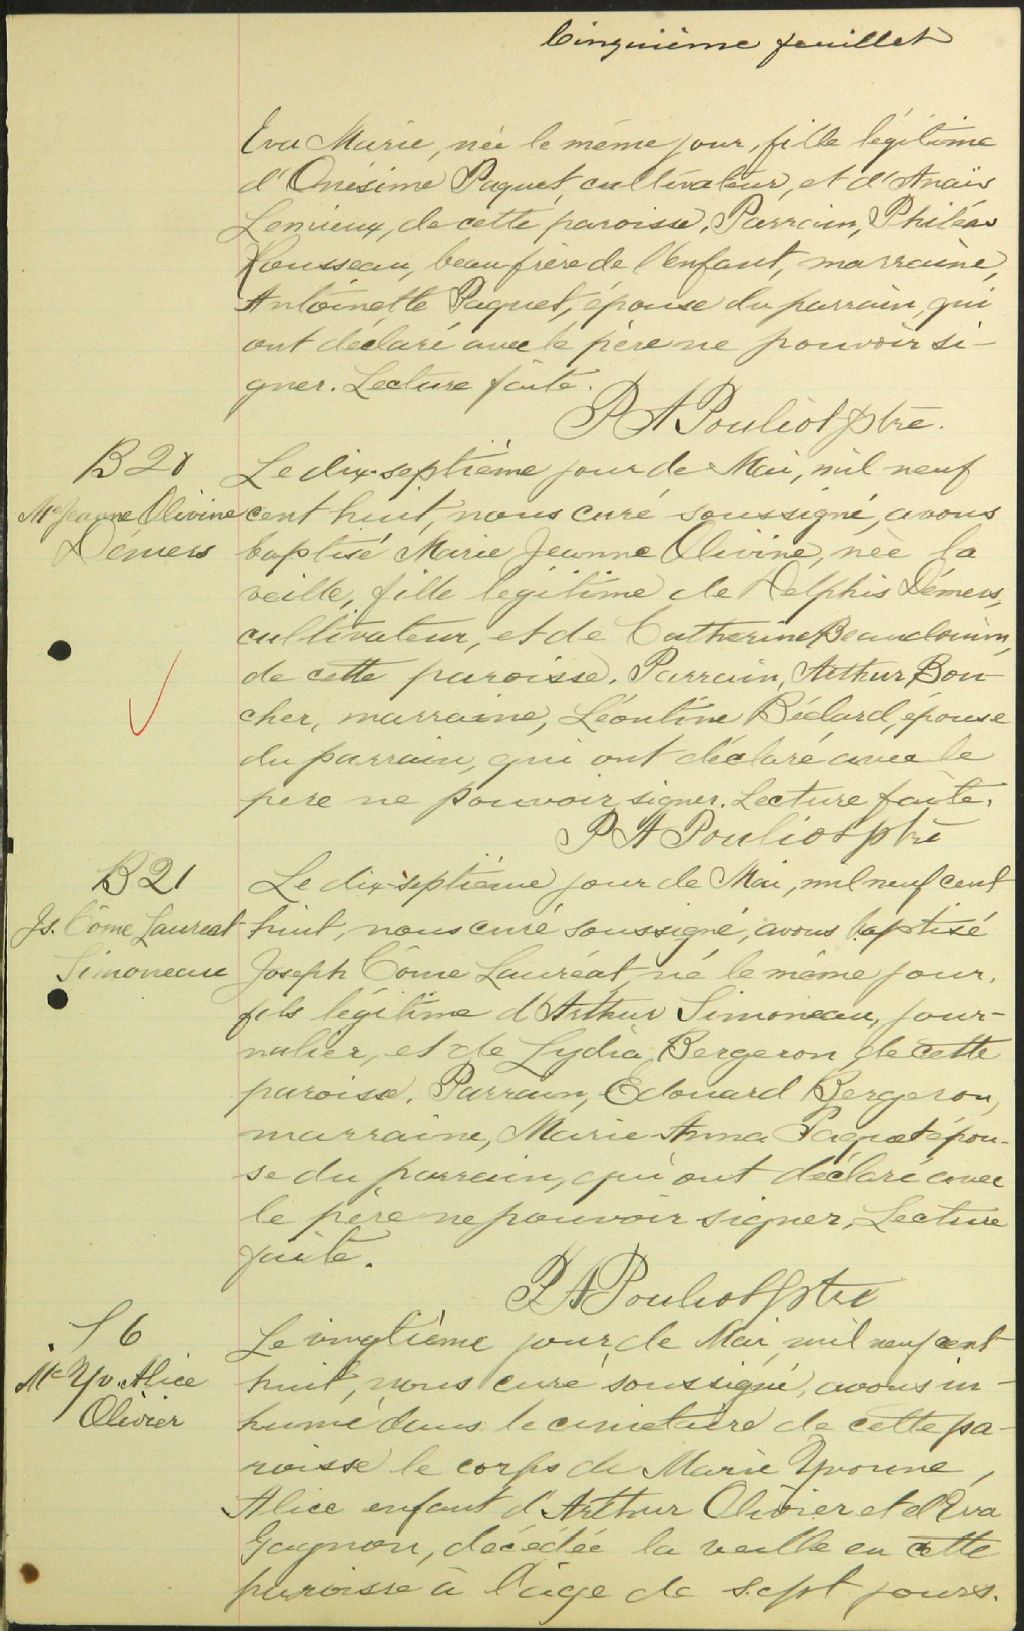 Cinquième feuillet
Eva Marie, née le même jour, fille légitime
d'Onésime Paquet, cultivateur, et d'Anaïs
Lemieux, de cette paroisse. Parrain, Philéas
Rousseau, beau frère de l'enfant, marraine,
Antoinette Paquet, épouse du parrain, qui
ont déclaré avec le père ne pouvoir si-
gner. Lecture faite.
P A Pouliot ptre.
B 20
Mie Jeanne Olivine
Démers
Le dix-septième jour de Mai, mil neuf
cent huit, nous curé soussigné, avons
baptisé Marie Jeanne Olivine, née la
veille, fille légitime de Delphis Démers,
cultivateur, et de Catherine Beaudouin,
de cette paroisse. Parrain, Arthur Bou-
cher, marraine, Léontine Bédard, épouse
du parrain, qui ont déclaré avec le
père ne pouvoir signer. Lecture faite.
P A Pouliot ptre
B 21
Js. Côme Lauréat
Simoneau
Le dix-septième jour de Mai, mil neuf cent
huit, nous curé soussigné, avons baptisé
Joseph Côme Lauréat, né le même jour,
fils légitime d'Arthur Simoneau, jour-
nalier, et de Lydia Bergeron de cette
paroisse. Parrain, Edouard Bergeron,
marraine, Marie-Anna Paquet épou-
se du parrain, qui ont déclaré avec
le père ne pouvoir signer. Lecture
faite.
P A Pouliot ptre
S 6
Mie Yv. Alice
Olivier
Le vingtième jour de Mai, mil neuf cent
huit, nous curé soussigné, avons in-
humé dans le cimetière de cette pa-
roisse le corps de Marie Yvonne,
Alice enfant d'Arthur Olivier et d'Eva
Gagnon, décédée la veille en cette
paroisse à l'âge de sept jours.